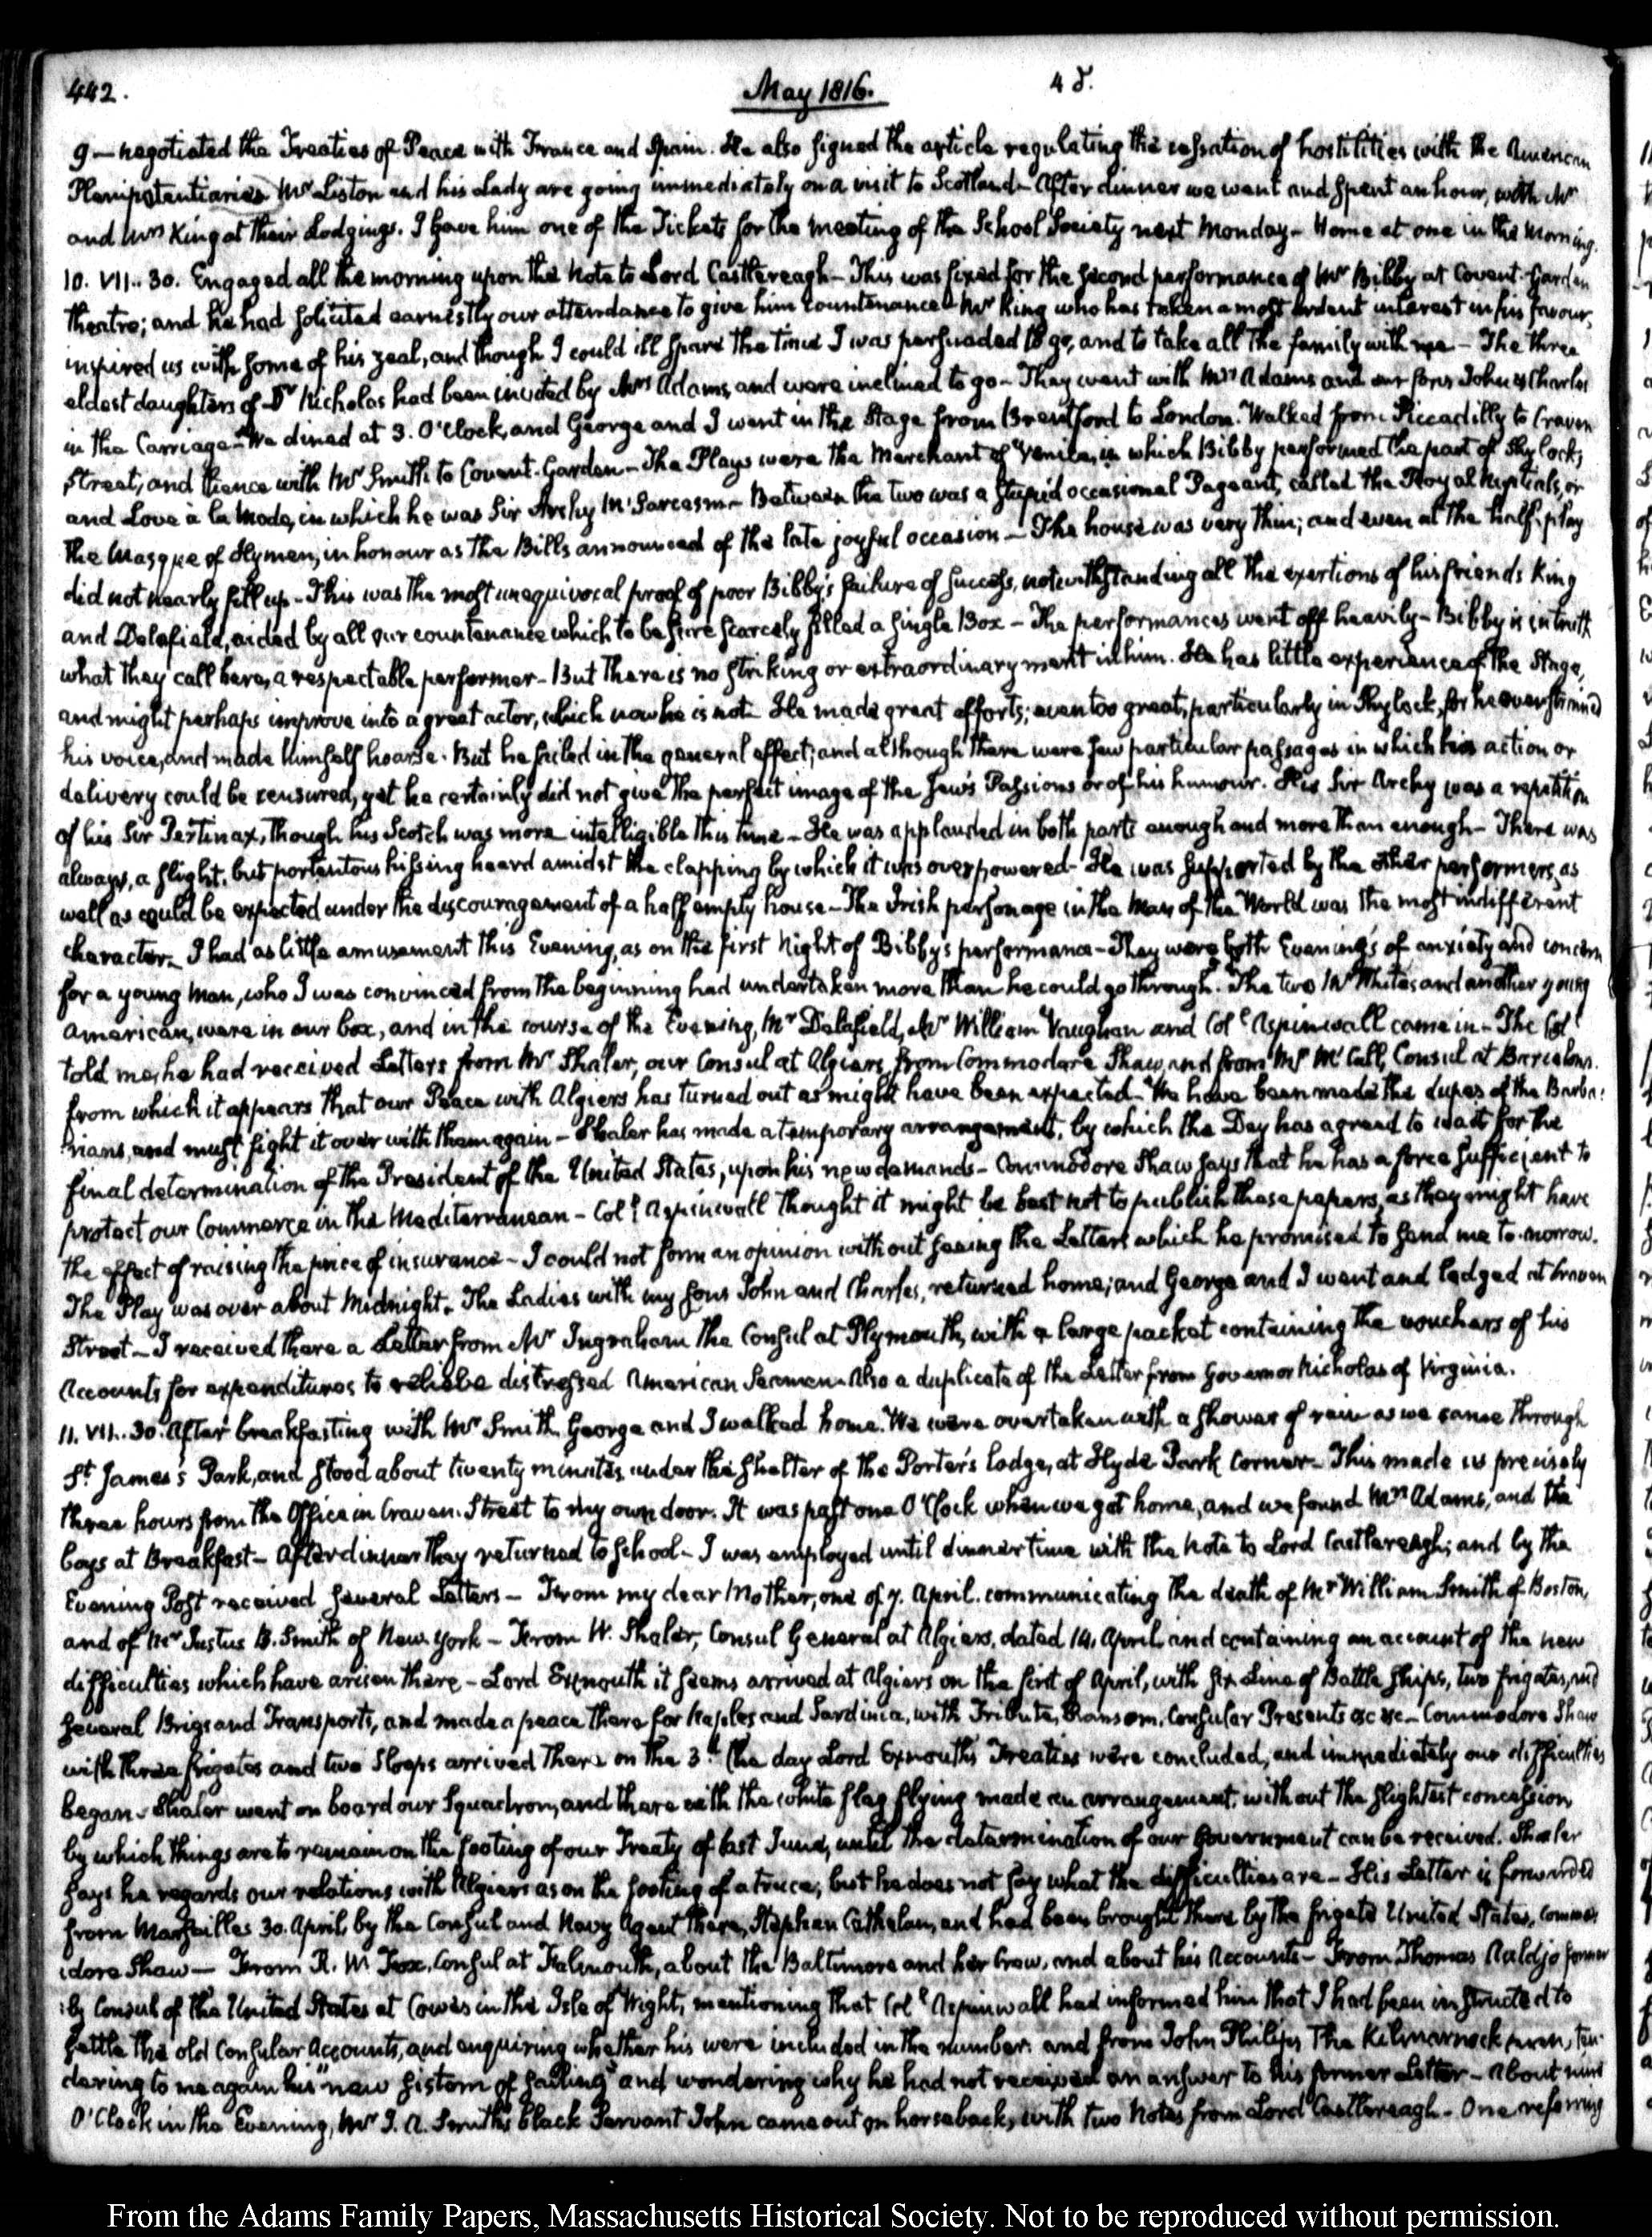 442.
May 1816.
9 — negotiated the Treaties of Peace with France and Spain. He also signed the article regulating the cessation of hostilities with the American
Plenipotentiaries Mr Liston and his Lady are going immediately on a visit to Scotland — After dinner we went and spent an hour, with Mr
and Mrs King at their Lodgings. I gave him one of the Tickets for the meeting of the School Society next Monday — Home at one in the Morning.
10. VII.. 30. Engaged all the morning upon the Note to Lord Castlereagh — This was fixed for the second performance of Mr Bibby at Covent-Garden
Theatre; and he had solicited earnestly our attendance to give him countenance — Mr King who has taken a most ardent interest in his favour,
inspired us with some of his zeal, and though I could ill spare the time I was persuaded to go, and to take all the family with me — The three
eldest daughters of Dr Nicholas had been invited by Mrs Adams, and were inclined to go — They went with Mrs Adams and our sons John & Charles
in the Carriage — We dined at 3. O'Clock, and George and I went in the Stage from Brentford to London. Walked from Piccadilly to Craven
Street, and thence with Mr Smith to Covent-Garden — The Plays were the Merchant of Venice, in which Bibby performed the part of Shylock;
and Love à la Mode, in which he was Sir Archy McSarcasm — Between the two was a stupid occasional Pageant, called the Royal Nuptials, or
the Masque of Hymen, in honour as the Bills announced of the late joyful occasion — The house was very thin; and even at the half-play
did not nearly fill up — This was the most unequivocal proof of poor Bibby's failure of success, notwithstanding all the exertions of his friends King
and Delafield, aided by all our countenance which to be sure scarcely filled a single Box — The performances went off heavily — Bibby is in truth
what they call here, a respectable performer — But there is no striking or extraordinary merit in him. He has little experience of the Stage,
and might perhaps improve into a great actor, which now he is not — He made great efforts; even too great, particularly in Shylock, for he overstrained
his voice, and made himself hoarse. But he failed in the general effect; and although there were few particular passages in which his action or
delivery could be censured, yet he certainly did not give the perfect image of the Jew's Passions or of his humour. His Sir Archy was a repetition
of his Sir Pertinax, though his Scotch was more intelligible this time — He was applauded in both parts enough and more than enough — There was
always, a slight, but portentous hissing heard amidst the clapping by which it was overpowered — He was supported by the other performers, as
well as could be expected under the discouragement of a half empty house — The Irish personage in the Man of the World was the most indifferent
character — I had as little amusement this Evening, as on the first Night of Bibby's performance — They were both Evenings of anxiety and concern
for a young Man, who I was convinced from the beginning had undertaken more than he could go through. The two Mr Whites and another young
American, were in our box, and in the course of the Evening, Mr Delafield, Mr William Vaughan and Coll Aspinwall came in — The Coll
told me, he had received Letters from Mr Shaler, our Consul at Algiers, from Commodore Shaw, and from Mr McCall, Consul at Barcelona.
from which it appears that our Peace with Algiers has turned out as might have been expected — We have been made the dupes of the Barba:
:rians, and must fight it over with them again — Shaler has made a temporary arrangement, by which the Dey has agreed to wait for the
final determination of the President of the United States, upon his new demands — Commodore Shaw says that he has a force sufficient to
protect our Commerce in the Mediterranean — Coll Aspinwall thought it might be best not to publish these papers, as they might have
the effect of raising the price of insurance — I could not form an opinion without seeing the Letters which he promised to send me to-morrow.
The Play was over about Midnight. The Ladies with my Sons John and Charles, returned home; and George and I went and lodged at Craven
Street — I received there a Letter from Mr Ingraham the Consul at Plymouth, with a large packet containing the vouchers of his
Accounts for expenditures to relieve distressed American Seamen — Also a duplicate of the Letter from Governor Nicholas of Virginia.
11. VII.. 30. After breakfasting with Mr Smith, George and I walked home. We were overtaken with a shower of rain as we came through
St James's Park, and stood about twenty minutes under the shelter of the Porter's lodge, at Hyde Park Corner — This made us precisely
three hours from the Office in Craven-Street to my own door. It was past one O'Clock when we got home, and we found Mrs Adams, and the
boys at Breakfast — After dinner they returned to School — I was employed until dinner time with the Note to Lord Castlereagh; and by the
Evening Post received several Letters — From my dear Mother, one of 7. April. communicating the death of Mr William Smith of Boston,
and of Mr Justus B. Smith of New-York — From W. Shaler, Consul General at Algiers, dated 14. April and containing an account of the new
difficulties which have arisen there — Lord Exmouth it seems arrived at Algiers on the first of April, with six Line of Battle ships, two frigates, and
several Brigs and Transports, and made a peace there for Naples and Sardinia, with Tribute, Ransom, Consular Presents &c &c — Commodore Shaw
with three frigates and two Sloops arrived there on the 3d the day Lord Exmouth's Treaties were concluded, and immediately our difficulties
began — Shaler went on board our Squadron, and there with the white flag flying made an arrangement, without the slightest concession,
by which things are to remain on the footing of our Treaty of last June, until the determination of our Government can be received. Shaler
says he regards our relations with Algiers as on the footing of a truce; but he does not say what the difficulties are — His Letter is forwarded
from Marseilles 30. April, by the Consul and Navy Agent there, Stephen Cathalan, and had been brought there by the frigate United States, Commo:
:dore Shaw — From R. W. Fox, Consul at Falmouth, about the Baltimore and her Crew, and about his Accounts — From Thomas Auldjo former
:ly Consul of the United States at Cowes in the Isle of Wight, mentioning that Coll Aspinwall had informed him that I had been instructed to
settle the old Consular Accounts, and enquiring whether his were included in the number: and from John Philips, The Kilmarnock man, ten:
dering to me again his "new sistom of sailing" and wondering why he had not received an answer to his former Letter — About nine
O'Clock in the Evening, Mr J. A. Smith's black Servant John came out on horseback, with two Notes from Lord Castlereagh — One referring
From the Adams Family Papers, Massachusetts Historical Society. Not to be reproduced without permission.